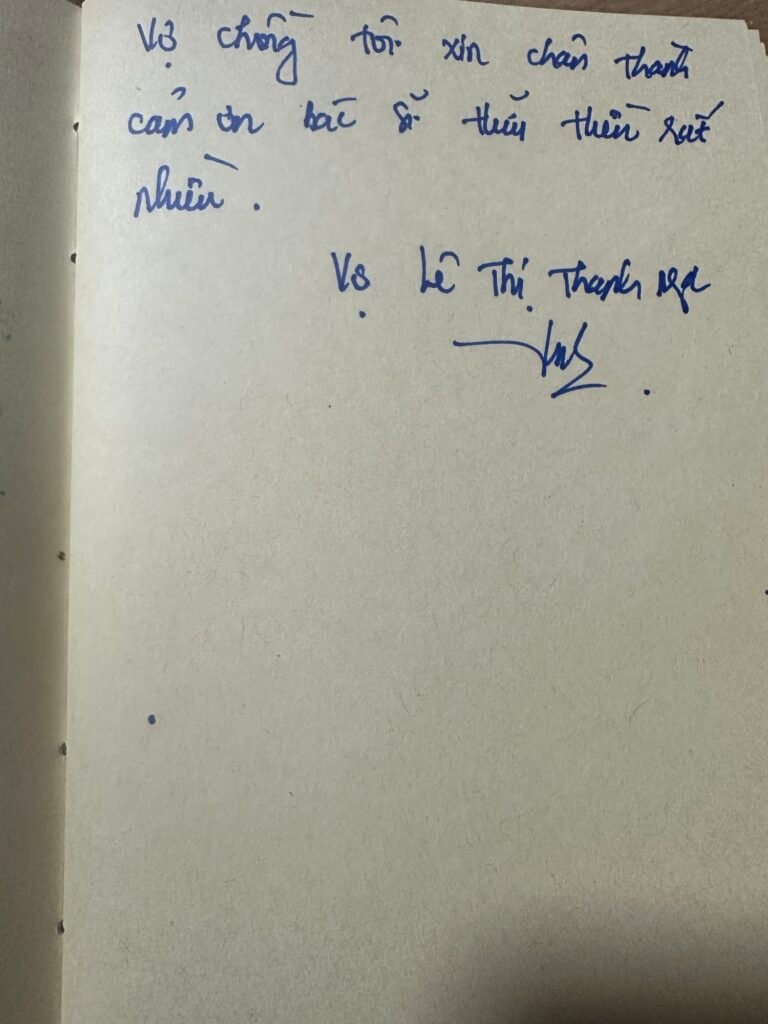 Vợ chồng tôi xin chân thành
cảm ơn bác sĩ thủy thiên rất
nhiều.
Vợ Lê Thị Thanh Nga